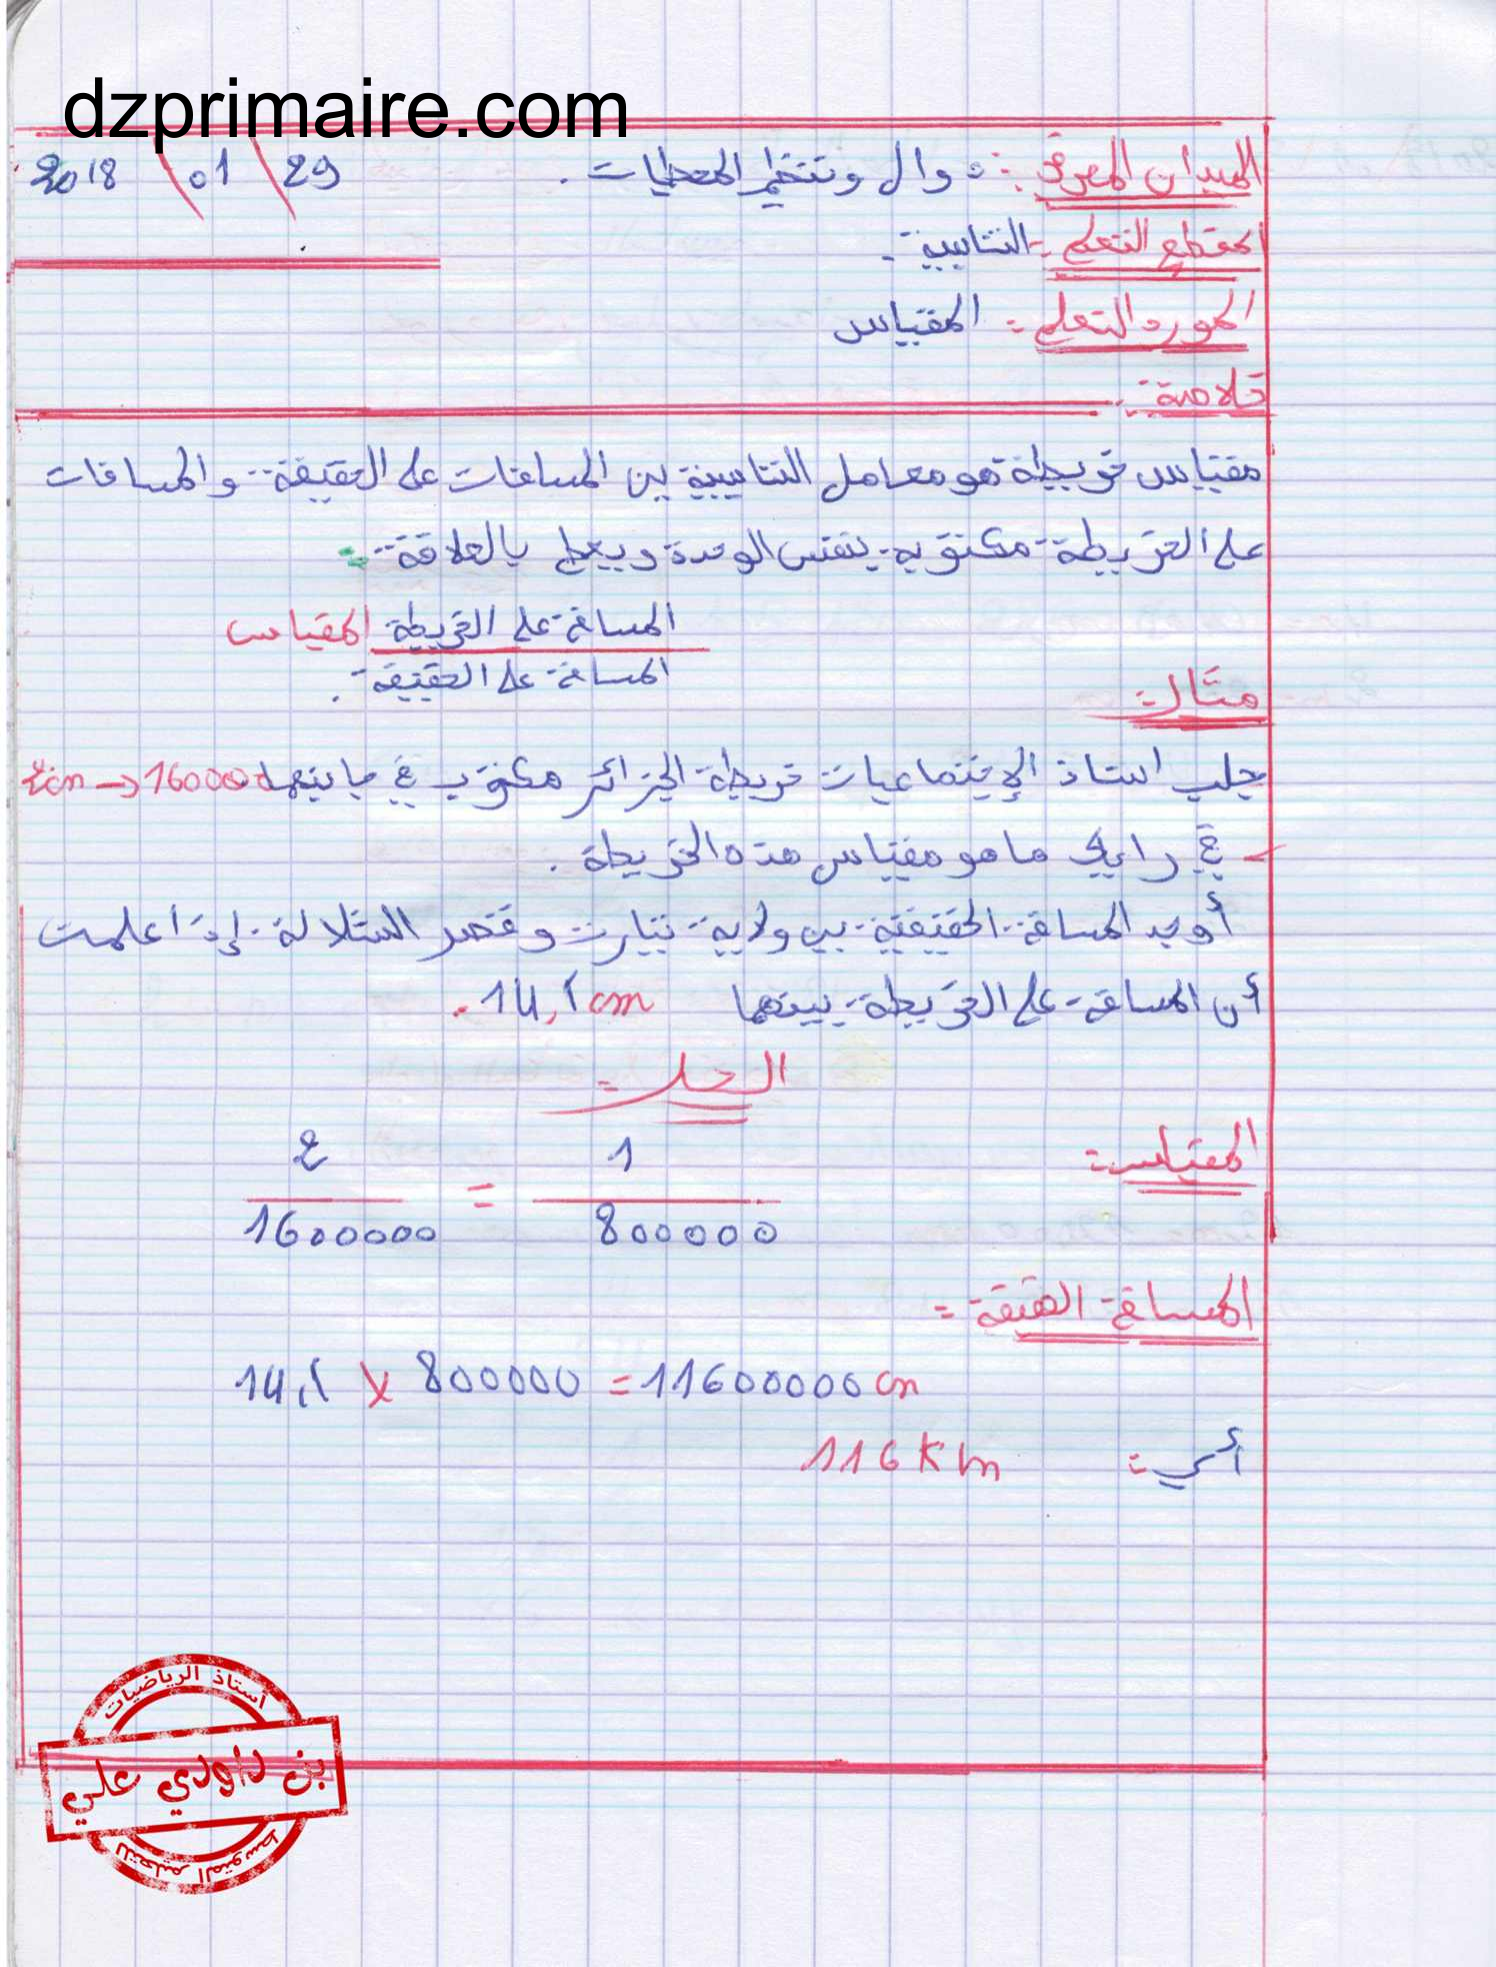 dzprimaire.com
الميدان المعرفي : دوال وتنظيم المعطيات . 29 \ 01 \ 2018
المقطع التعلمي : التناسبية .
المورد التعلمي : المقياس
خلاصة :
مقياس خريطة هو معامل التناسبية بين المسافات على الحقيقة والمسافات
على الخريطة مكتوبة بنفس الوحدة ويعطى بالعلاقة :
المسافة على الخريطة المقياس
المسافة على الحقيقة .
مثال :
جلب استاذ الإجتماعيات خريطة الجزائر مكتوب في جانبها 2cm → 1600000
- في رايك ما هو مقياس هذه الخريطة .
أوجد المسافة الحقيقية بين ولاية تيارت وقصر الشلالة إذا علمت
أن المسافة على الخريطة بينهما 14,5 cm .
الحل :
المقياس :
2 / 1600000 = 1 / 800000
المسافة الحقيقة :
14,5 x 800000 = 11600000 cm
أي : 116 Km
أستاذ الرياضيات
بن داودي علي
للتعليم المتوسط